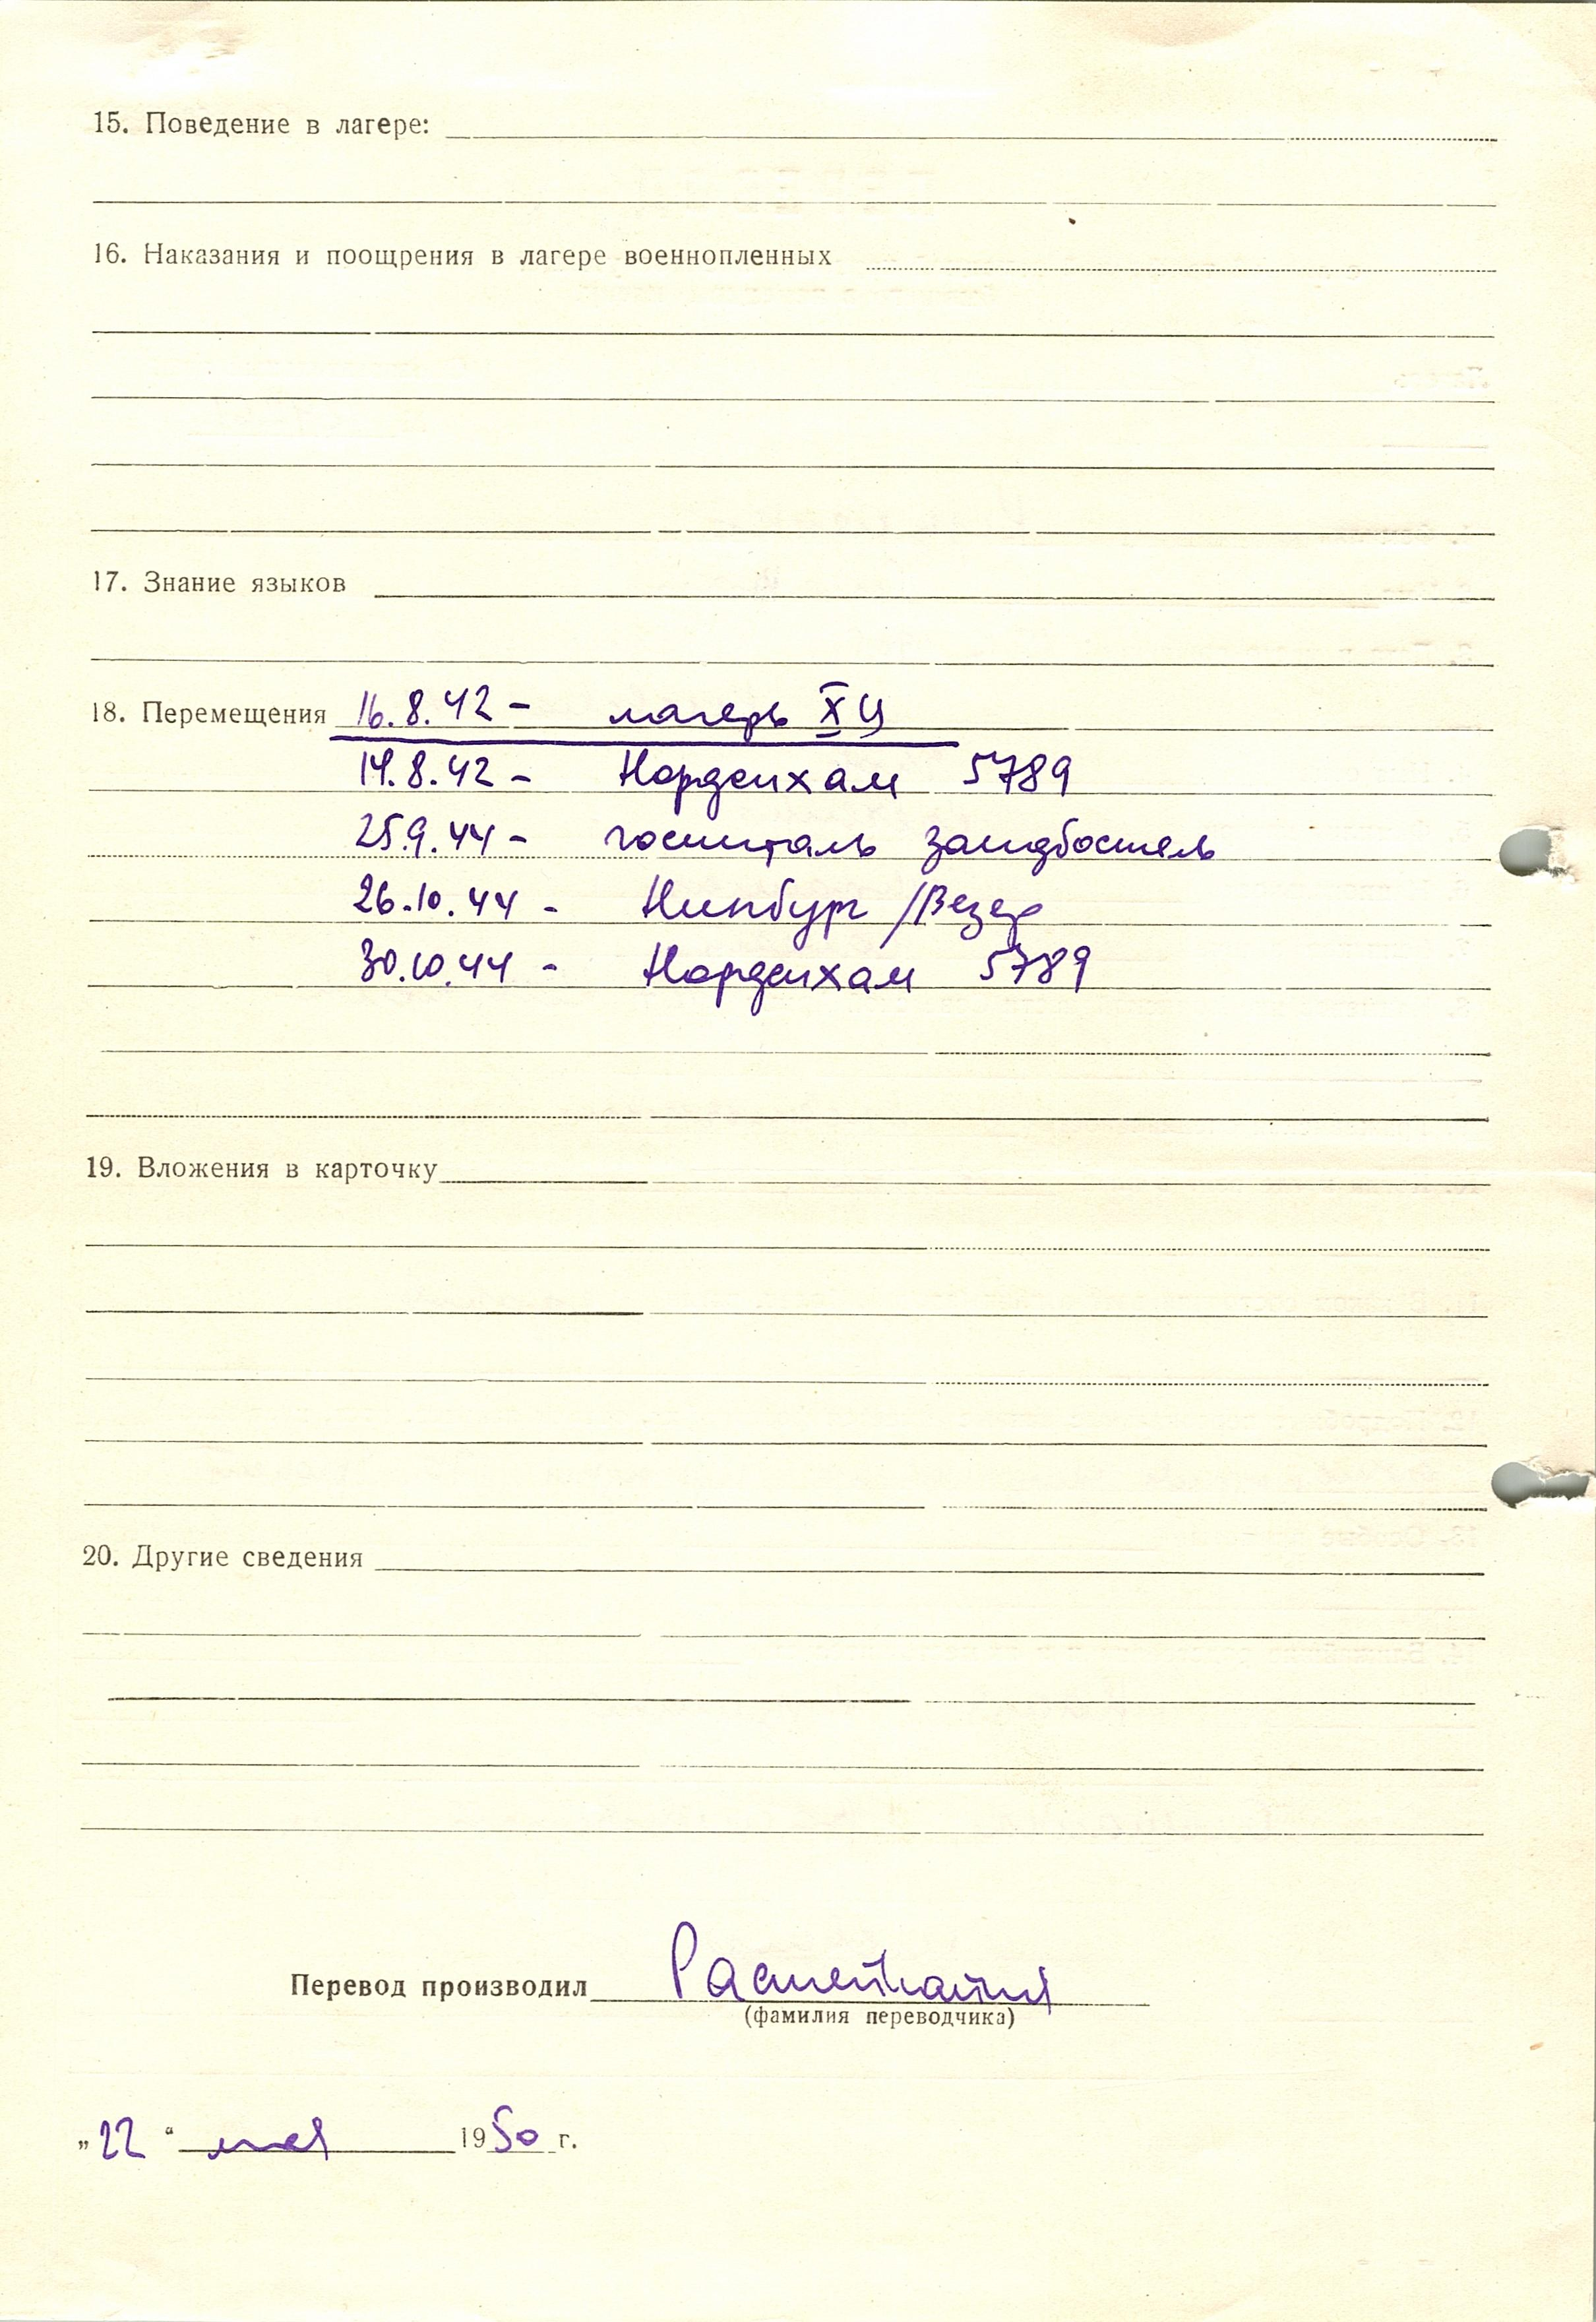 15. Поведение в лагере:
16. Наказания и поощрения в лагере военнопленных
17. Знание языков
18. Перемещения 16.8.42 - лагерь X Ц
14.8.42 - Норденхам 5789
25.9.44 - госпиталь Зандбостель
26.10.44 - Нинбург /Везер
30.10.44 - Норденхам 5789
19. Вложения в карточку
20. Другие сведения
Перевод производил
(фамилия переводчика)
„22“ мая 1950 г.